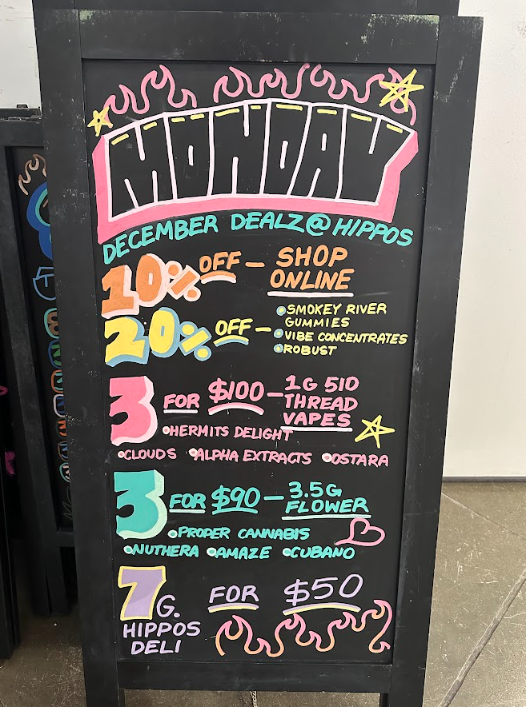 MONDAY
DECEMBER DEALZ @ HIPPOS
10% OFF - SHOP
ONLINE
20% OFF -
• SMOKEY RIVER
GUMMIES
• VIBE CONCENTRATES
• ROBUST
3 FOR $100 - 1G 510
THREAD
VAPES
• HERMITS DELIGHT
• CLOUDS • ALPHA EXTRACTS • OSTARA
3 FOR $90 - 3.5G
FLOWER
• PROPER CANNABIS
• NUTHERA • AMAZE • CUBANO
7G. FOR $50
HIPPOS
DELI